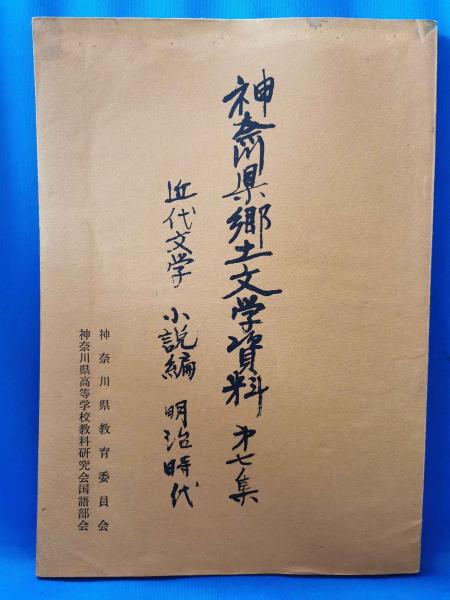 神奈川県郷土文学資料 第七集
近代文学 小説編 明治時代
神奈川県教育委員会
神奈川県高等学校教科研究会国語部会